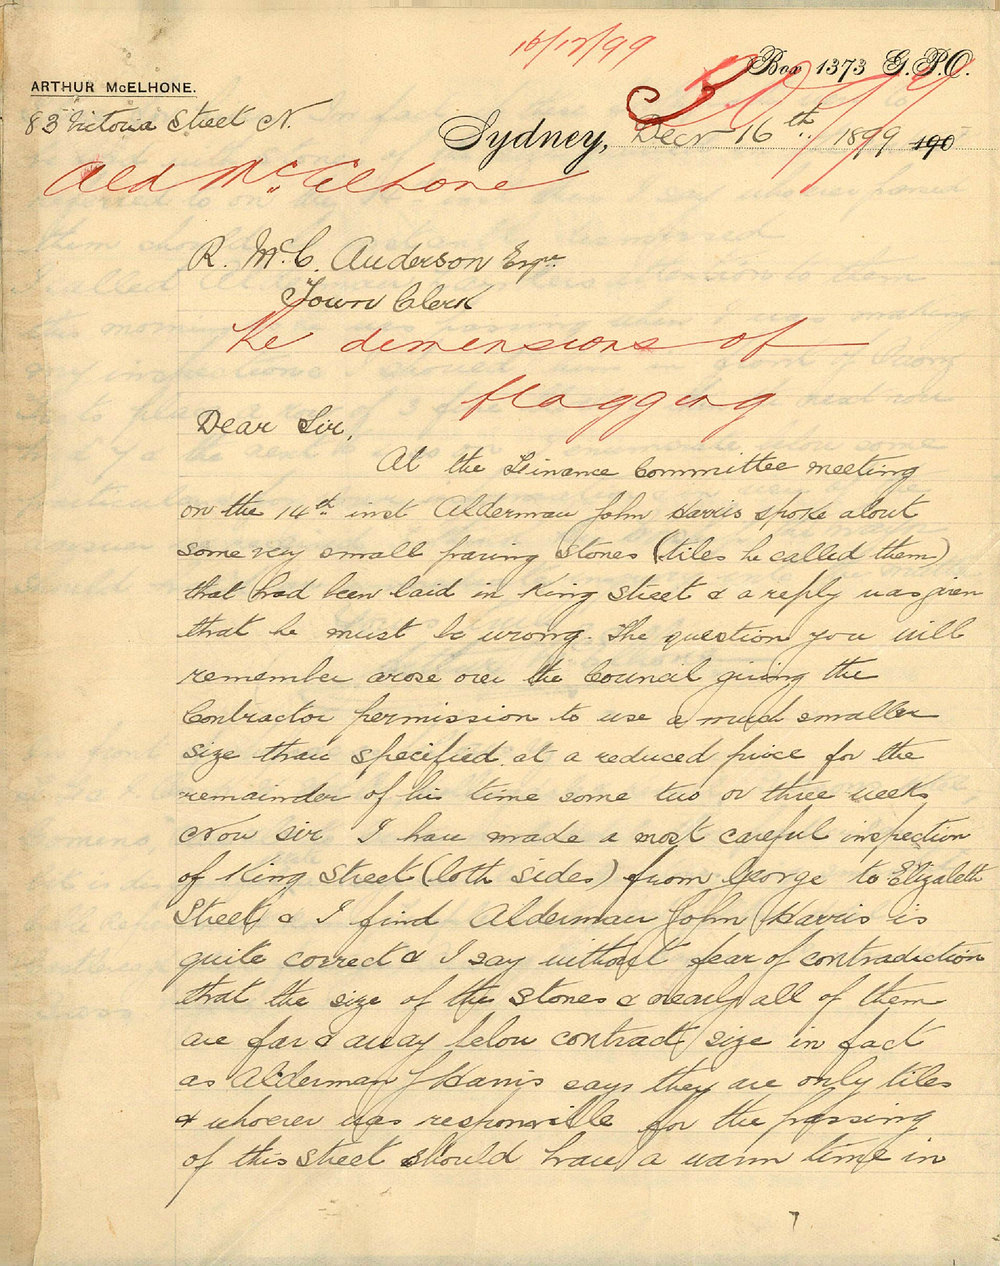 16/12/99
Box 1373 G.P.O.
ARTHUR McELHONE.
83 Victoria Street N.
Sydney, Decr 16th 1899 190
Ald McElhone
R. McC. Anderson Esqr
Town Clerk
Re dimensions of
flagging
Dear Sir,
At the Finance Committee meeting
on the 14th inst Alderman John Harris spoke about
some very small paving stones (tiles he called them)
that had been laid in King Street & a reply was given
that he must be wrong. The question you will
remember arose over the Council giving the
Contractor permission to use a much smaller
size than specified at a reduced price for the
remainder of his time some two or three weeks
Now sir I have made a most careful inspection
of King Street (both sides) from George to Elizabeth
Street & I find Alderman John Harris is
quite correct & I say without fear of contradiction
that the size of the stones & nearly all of them
are far & away below contract size in fact
as Alderman J Harris says they are only tiles
& whoever was responsible for the passing
of this street should have a warm time in
7